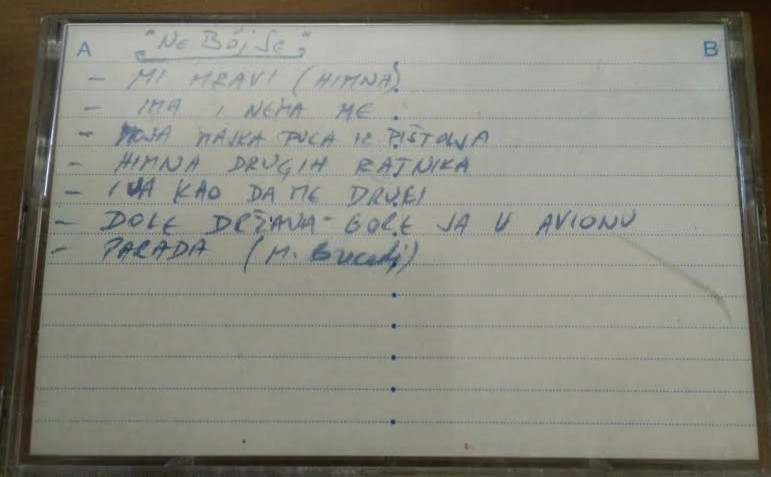 A "Ne Boj Se" B
- MI MRAVI (HIMNA)
- IMA I NEMA ME
- MOJA MAJKA PUCA IZ PIŠTOLJA
- HIMNA DRUGIH RATNIKA
- KAO DA ME DRUGI
- DOLE DRŽAVA - GORE JA U AVIONU
- PARADA (M.